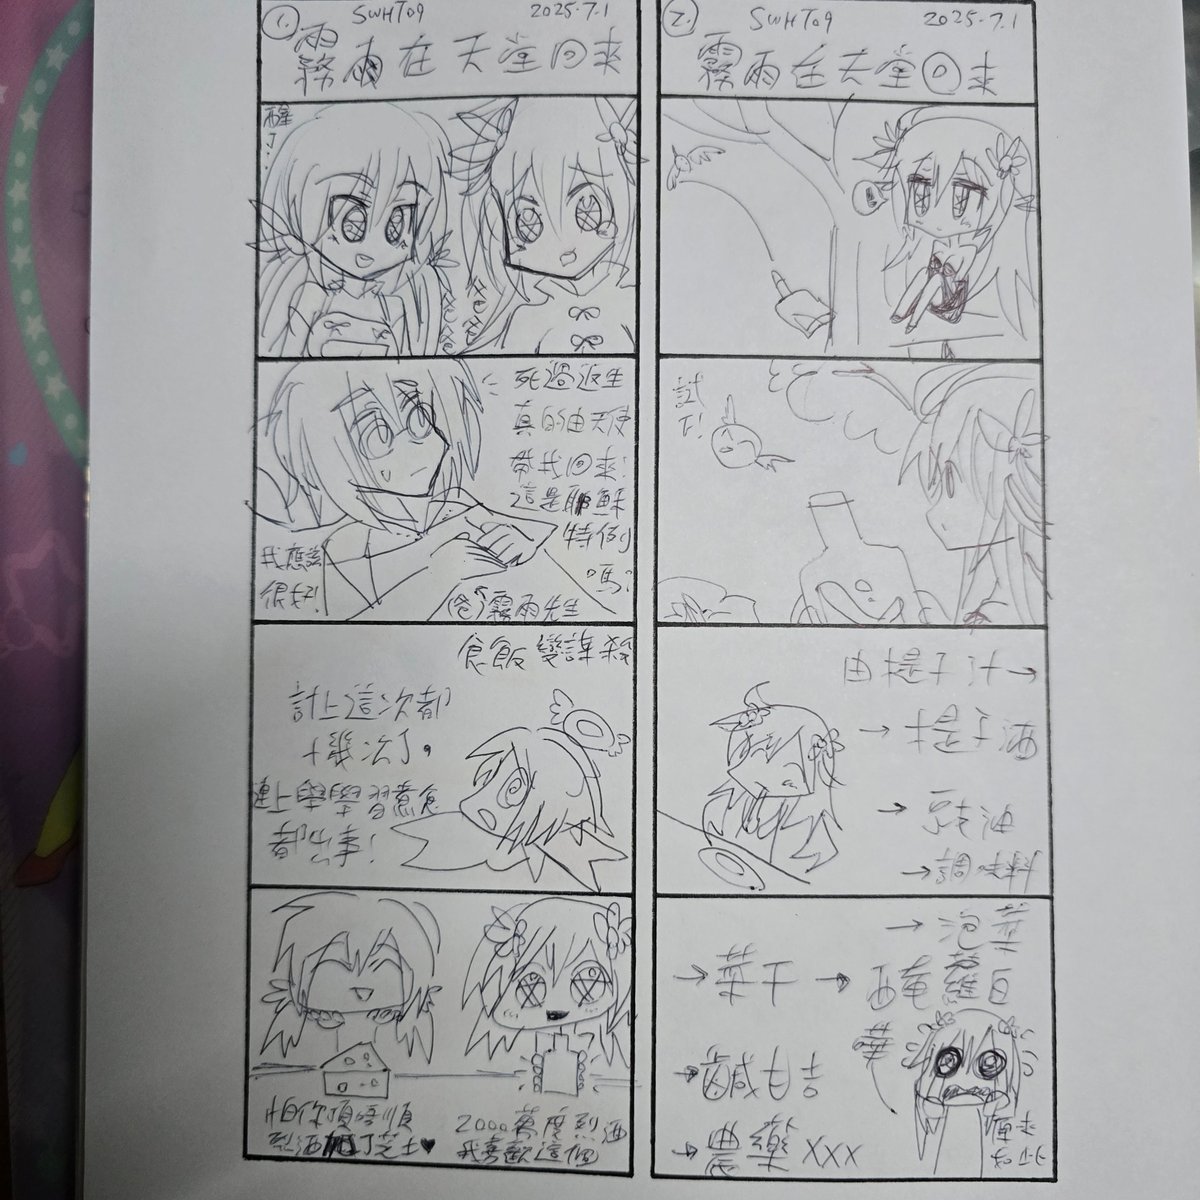 1.
SWHT09
2025.7.1
霧雨在天堂回来
醒了!
死過返生
真的由天使
帶我回来!
這是耶穌
特例
嗎?
我應該
很好!
霧雨先生
食飯變謀殺
計上這次都
十幾次了。
連上學學習煮食
都出事!
怕你頂唔順
烈酒加了芝士♥
2000萬度烈酒
我喜歡這個
2.
SWHT09
2025.7.1
霧雨在天堂回来
試下!
由提子汁→
→提子酒
→豆支油
→調味料
→泡菜
醃蘿白
→菜干→
嘩
→鹹月吉
→農藥XXX